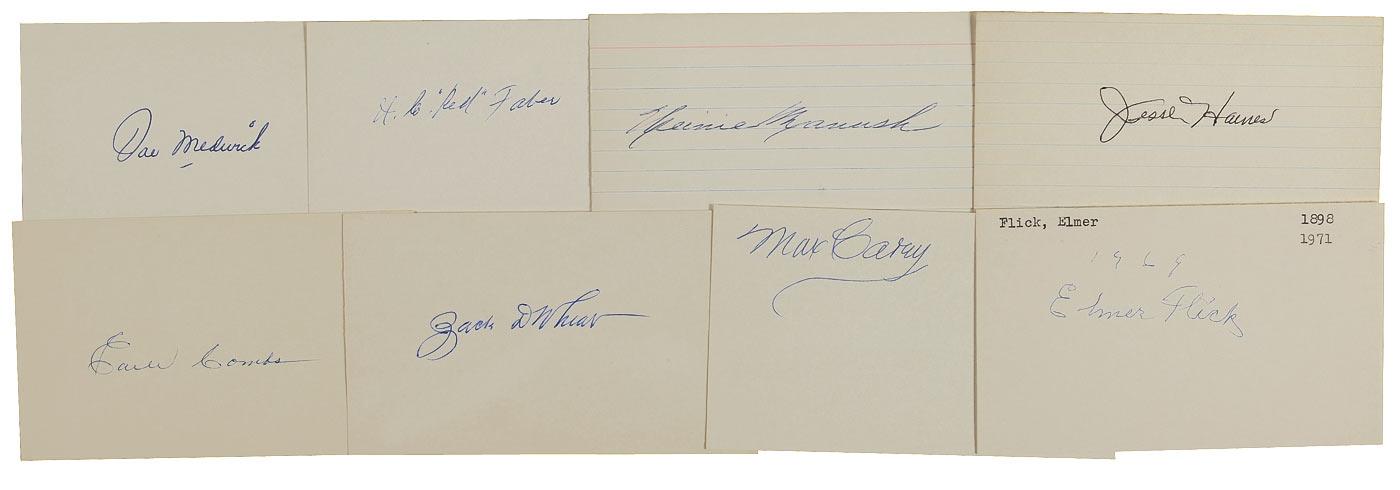 Joe Medwick
"Red" Faber
Heinie Manush
Jesse Haines
Earle Combs
Zack D Wheat
Max Carey
Flick, Elmer 1898
1971
1969
Elmer Flick